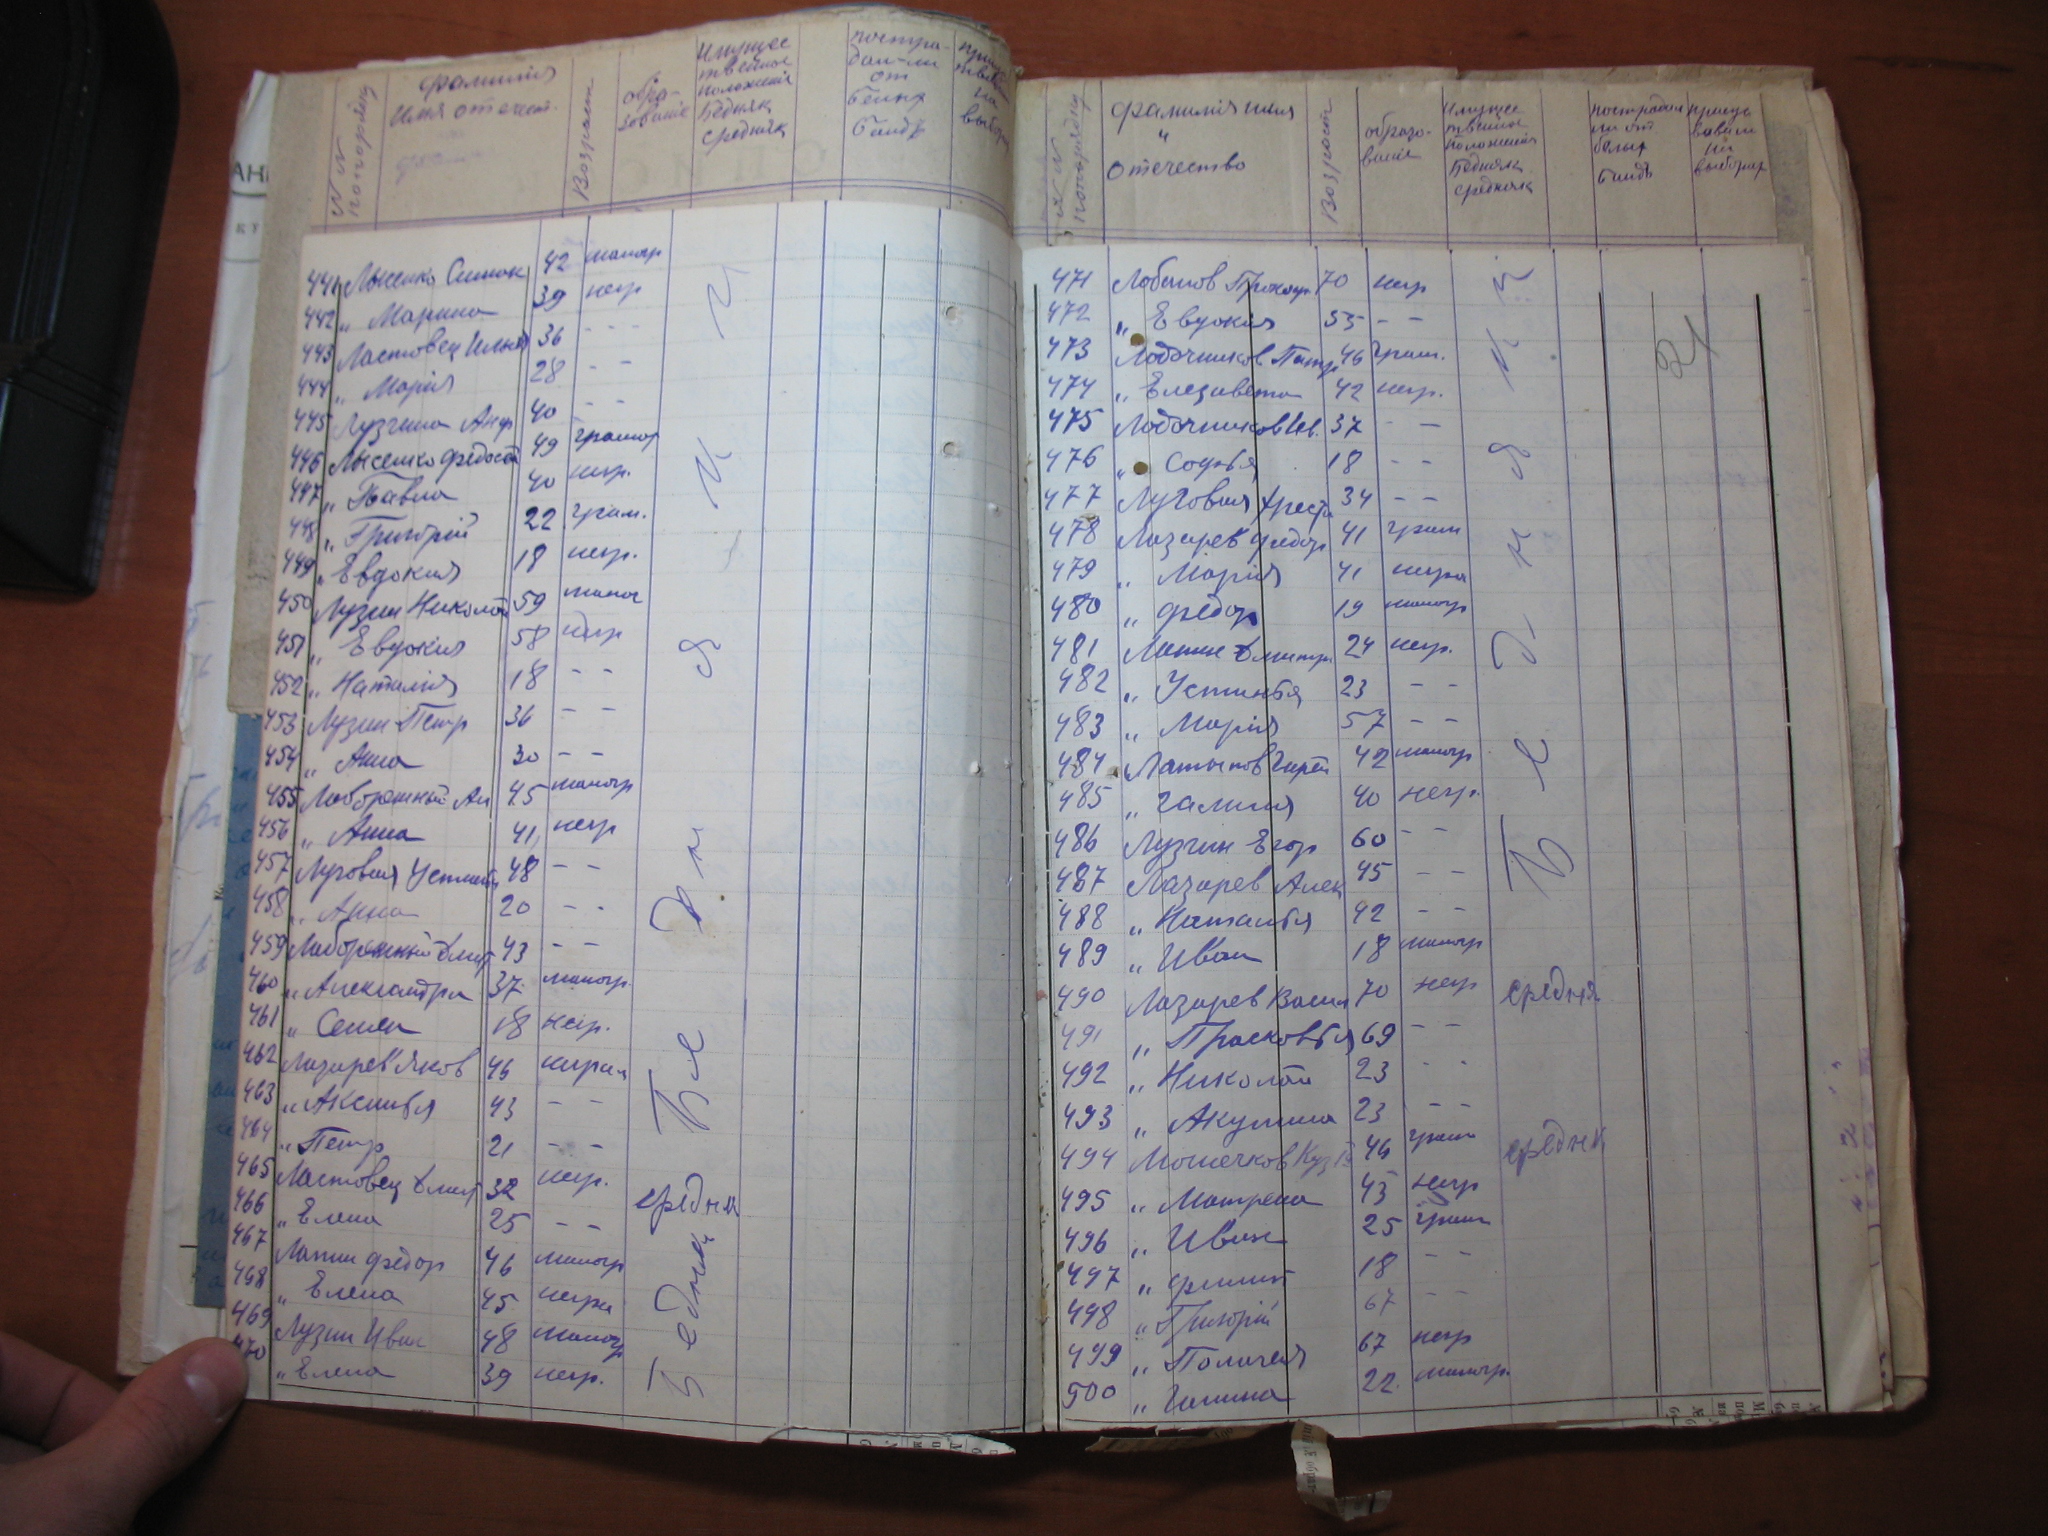 № № по порядку Фамилия Имя отчест. Возраст обра- зование Имущес твенное положение Бедняк средняк постра- дал-ли от белых банд на выборах
441 Лысенко Симон 42 малогр
442 „ Марина 39 негр
443 Ластовец Илья 36 - - -
444 „ Марія 28 - -
445 Лузгина Анф 40 - -
446 Лысенко Федосей 49 грамот
447 „ Павла 40 негр.
448 „ Григорій 22 грам.
449 „ Евдокия 18 негр.
450 Лузин Николай 59 малог
451 „ Евдокия 58 негр
452 „ Наталия 18 - -
453 Лузин Петр 36 - -
454 „ Анна 30 - -
455 Лаборешный Ан 45 малогр
456 „ Анна 41 негр
457 Луговая Устинья 48 - -
458 „ Анна 20 - -
459 Лаборешный Дмит 43 - -
460 „ Александра 37 малогр.
461 „ Семен 18 негр.
462 Лазарев Яков 46 неграм
463 „ Аксинья 43 - -
464 „ Петр 21 - -
465 Ластовец Дмит 32 негр. средня
466 „ Елена 25 - -
467 Лапин Федор 46 малогр
468 „ Елена 45 негра
469 Лузин Иван 48 малогр
470 „ Елена 39 негр.
Бедняки
Бедняк
№ № по порядку Фамилия имя и отчество Возраст образо- вание Имущес твенное положения Бедняк средняк пострадал ли от белых банд выборах
471 Лобанов Прокоп 70 негр
472 „ Евдокия 55 - -
473 Лодочников Петр 46 грам.
474 „ Елезавета 42 негр.
475 Лодочников Ив. 37 - -
476 „ Софья 18 - -
477 Луговая Хрест 34 - -
478 Лазарев Федор 41 грам
479 „ Марія 41 негра
480 „ Федор 19 малогр
481 Лапин Дмитри 24 негр.
482 „ Устинья 23 - -
483 „ Марія 57 - -
484 Латыпов Гирей 42 малогр
485 „ Галия 40 негр.
486 Лузгин Егор 60 - -
487 Лазарев Алек 45 - -
488 „ Наталья 42 - -
489 „ Иван 18 малогр
490 Лазарев Васил 70 негр средня
491 „ Прасковья 69 - -
492 „ Николай 23 - -
493 „ Акулина 23 - -
494 Мошечков Кузь 46 грам средняк
495 „ Матрена 43 негр
496 „ Иван 25 грам
497 „ Филип 18 - -
498 „ Григорій 67 - -
499 „ Полагея 67 негр
500 „ Галина 22. малогр.
Бедняки
21